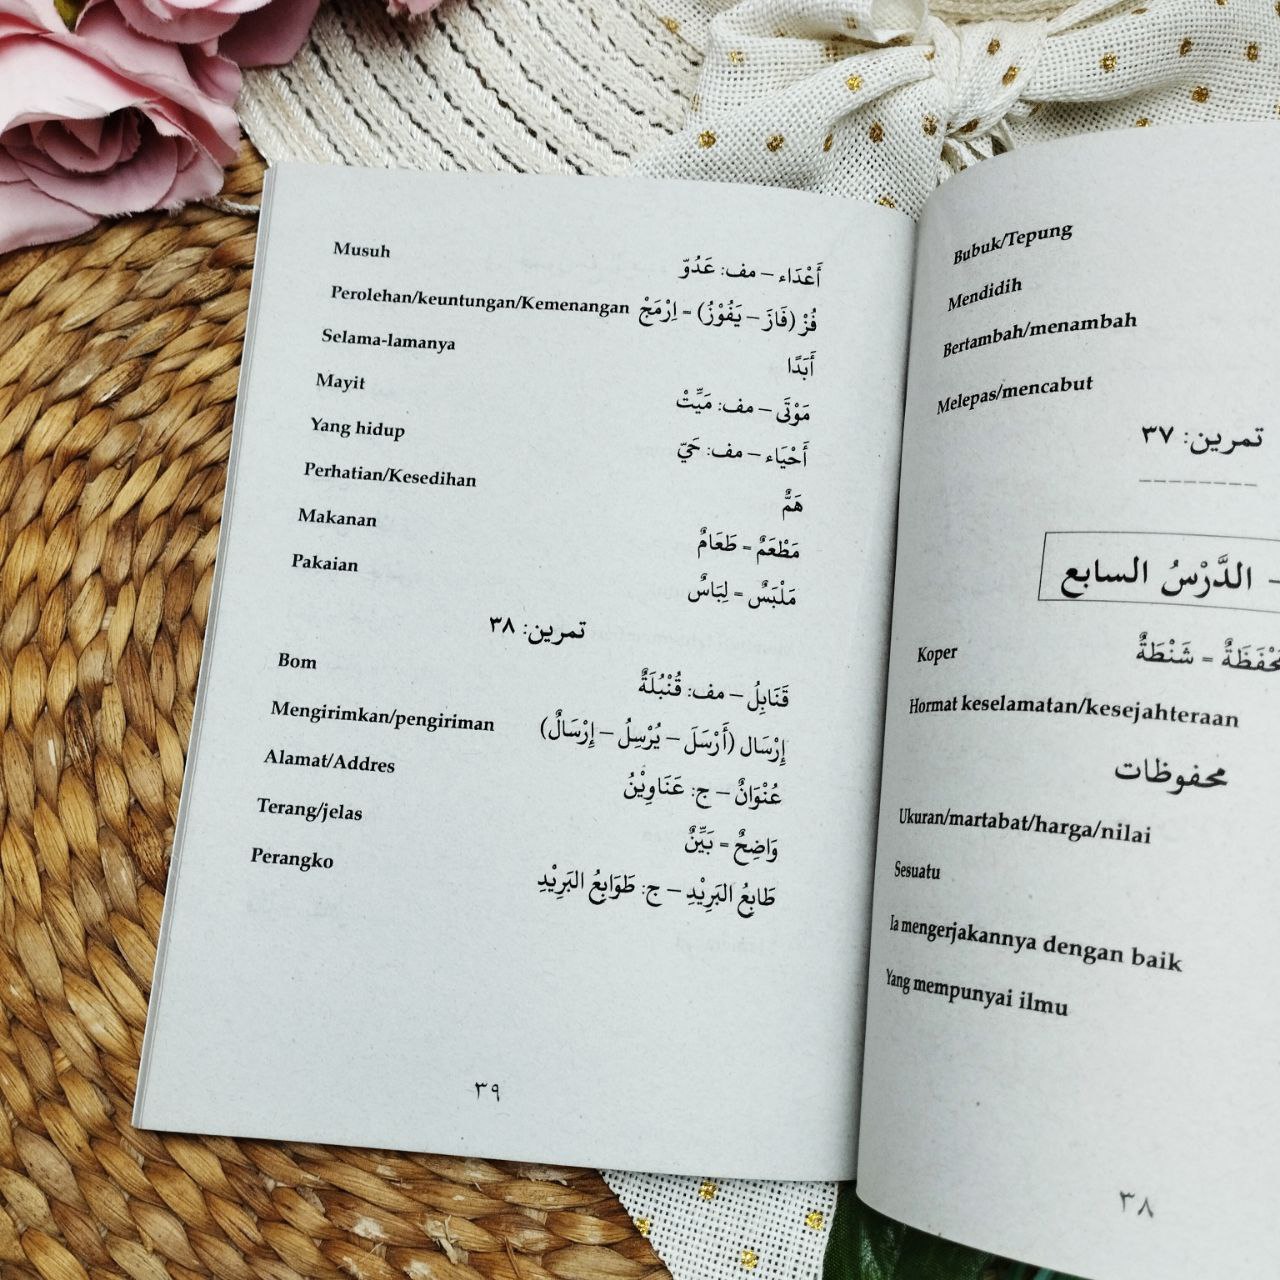 Bubuk/Tepung
Mendidih
Bertambah/menambah
Melepas/mencabut
تمرين: ٣٧
- الدَّرْسُ السابع
Koper = شَنْطَةٌ
Hormat keselamatan/kesejahteraan
محفوظات
Ukuran/martabat/harga/nilai
Sesuatu
Ia mengerjakannya dengan baik
Yang mempunyai ilmu
٣٨
Musuh أَعْدَاء – مف: عَدُوّ
Perolehan/keuntungan/Kemenangan فُزْ (فَازَ – يَفُوْزُ) = اِرْمَجْ
Selama-lamanya أَبَدًا
Mayit مَوْتَى – مف: مَيِّتْ
Yang hidup أَحْيَاء – مف: حَيّ
Perhatian/Kesedihan هَمٌّ
Makanan مَطْعَمٌ = طَعَامٌ
Pakaian مَلْبَسٌ = لِبَاسٌ
تمرين: ٣٨
Bom قَنَابِلُ – مف: قُنْبُلَةٌ
Mengirimkan/pengiriman إِرْسَال (أَرْسَلَ – يُرْسِلُ – إِرْسَالٌ)
Alamat/Addres عُنْوَانٌ – ج: عَنَاوِيْنُ
Terang/jelas وَاضِحٌ = بَيِّنٌ
Perangko طَابِعُ البَرِيْدِ – ج: طَوَابِعُ البَرِيْدِ
٣٩